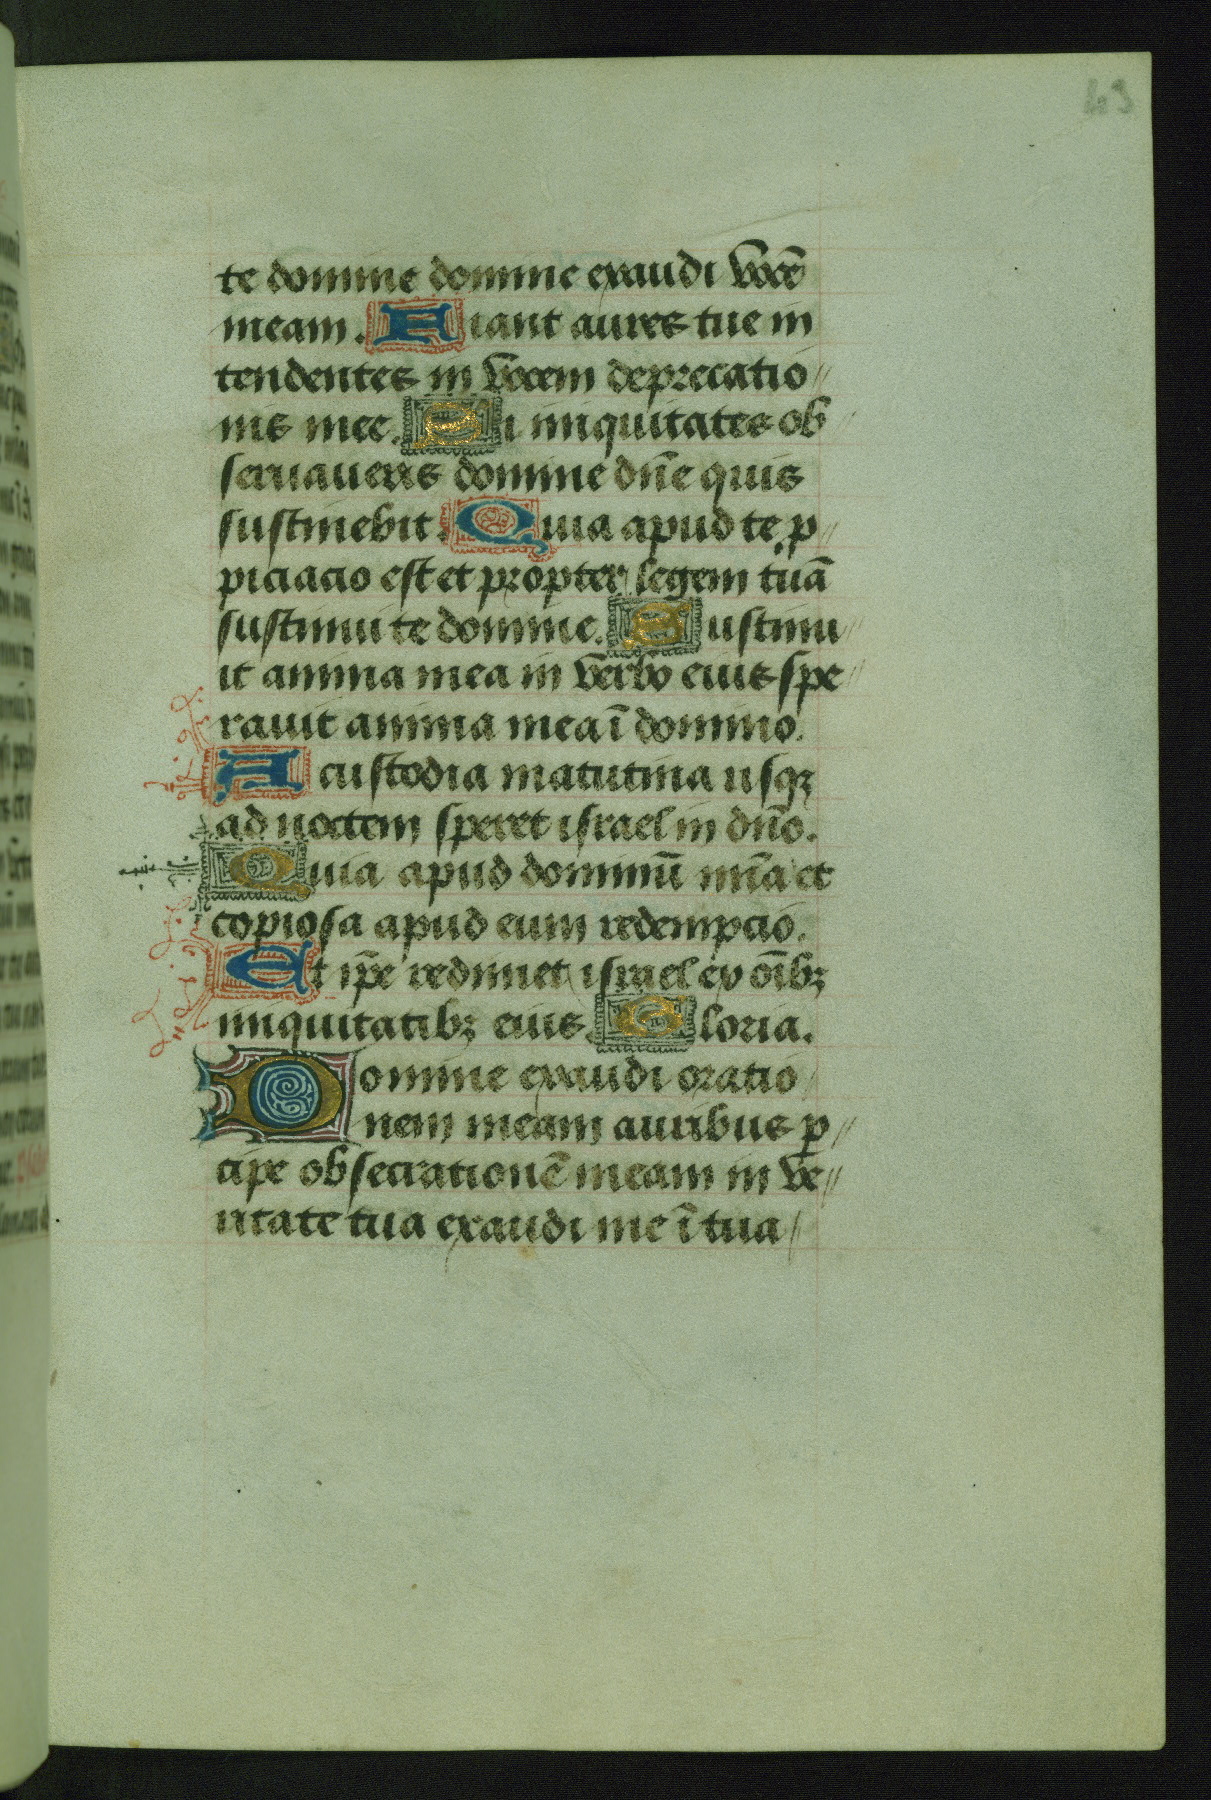 43
te domine domine exaudi vocē
meam. Fiant aures tue in
tendentes in vocem deprecatio//
nis mee. Si iniquitates ob
servaveris domine dn̄e quis
sustinebit. Quia apud te p//
piciacio est et propter legem tuā
sustinui te domine. Sustinu//
it anima mea in verbo eius spe//
ravit anima mea ī domino.
A custodia matutina usqꝫ
ad noctem speret israel in dn̄o.
Quia apud dominū mīa et
copiosa apud eum redempcio.
Et ip̄e redimet israel ex oībꝫ
iniquitatibꝫ eius. Gloria.
Domine exaudi oratio
nem meam auribus ꝑ//
cipe obsecrationē meam in ve//
ritate tua exaudi me ī tua //